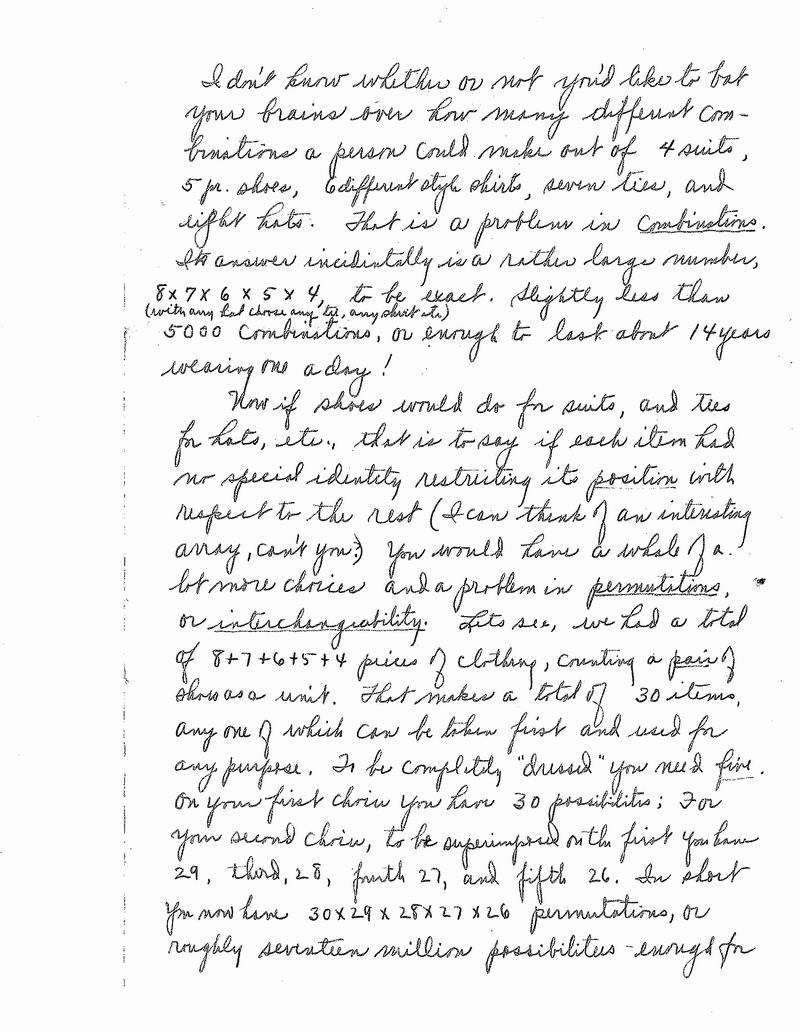 I don't know whether or not you'd like to bat
your brains over how many different com-
binations a person could make out of 4 suits,
5 pr. shoes, 6 different style shirts, seven ties, and
eight hats. That is a problem in combinations.
Its answer incidintally is a rather large number,
8 x 7 x 6 x 5 x 4, to be exact. Slightly less than
(with any hat choose any tie, any shirt etc)
5000 combinations, or enough to last about 14 years
wearing one a day!
Now if shoes would do for suits, and ties
for hats, etc., that is to say if each item had
no special identity restricting its position with
respect to the rest (I can think of an interesting
array, can't you?) You would have a whole of a
lot more choices and a problem in permutations,
or interchangiability. Lets see, we had a total
of 8+7+6+5+4 pieces of clothing, counting a pair of
shoes as a unit. That makes a total of 30 items,
any one of which can be taken first and used for
any purpose. To be completely "dressed" you need five.
On your first choice you have 30 possibilities; For
your second choice, to be superimposed on the first you have
29, third, 28, fourth 27, and fifth 26. In short
You now have 30x29x28x27x26 permutations, or
roughly seventeen million possibilities - enough for